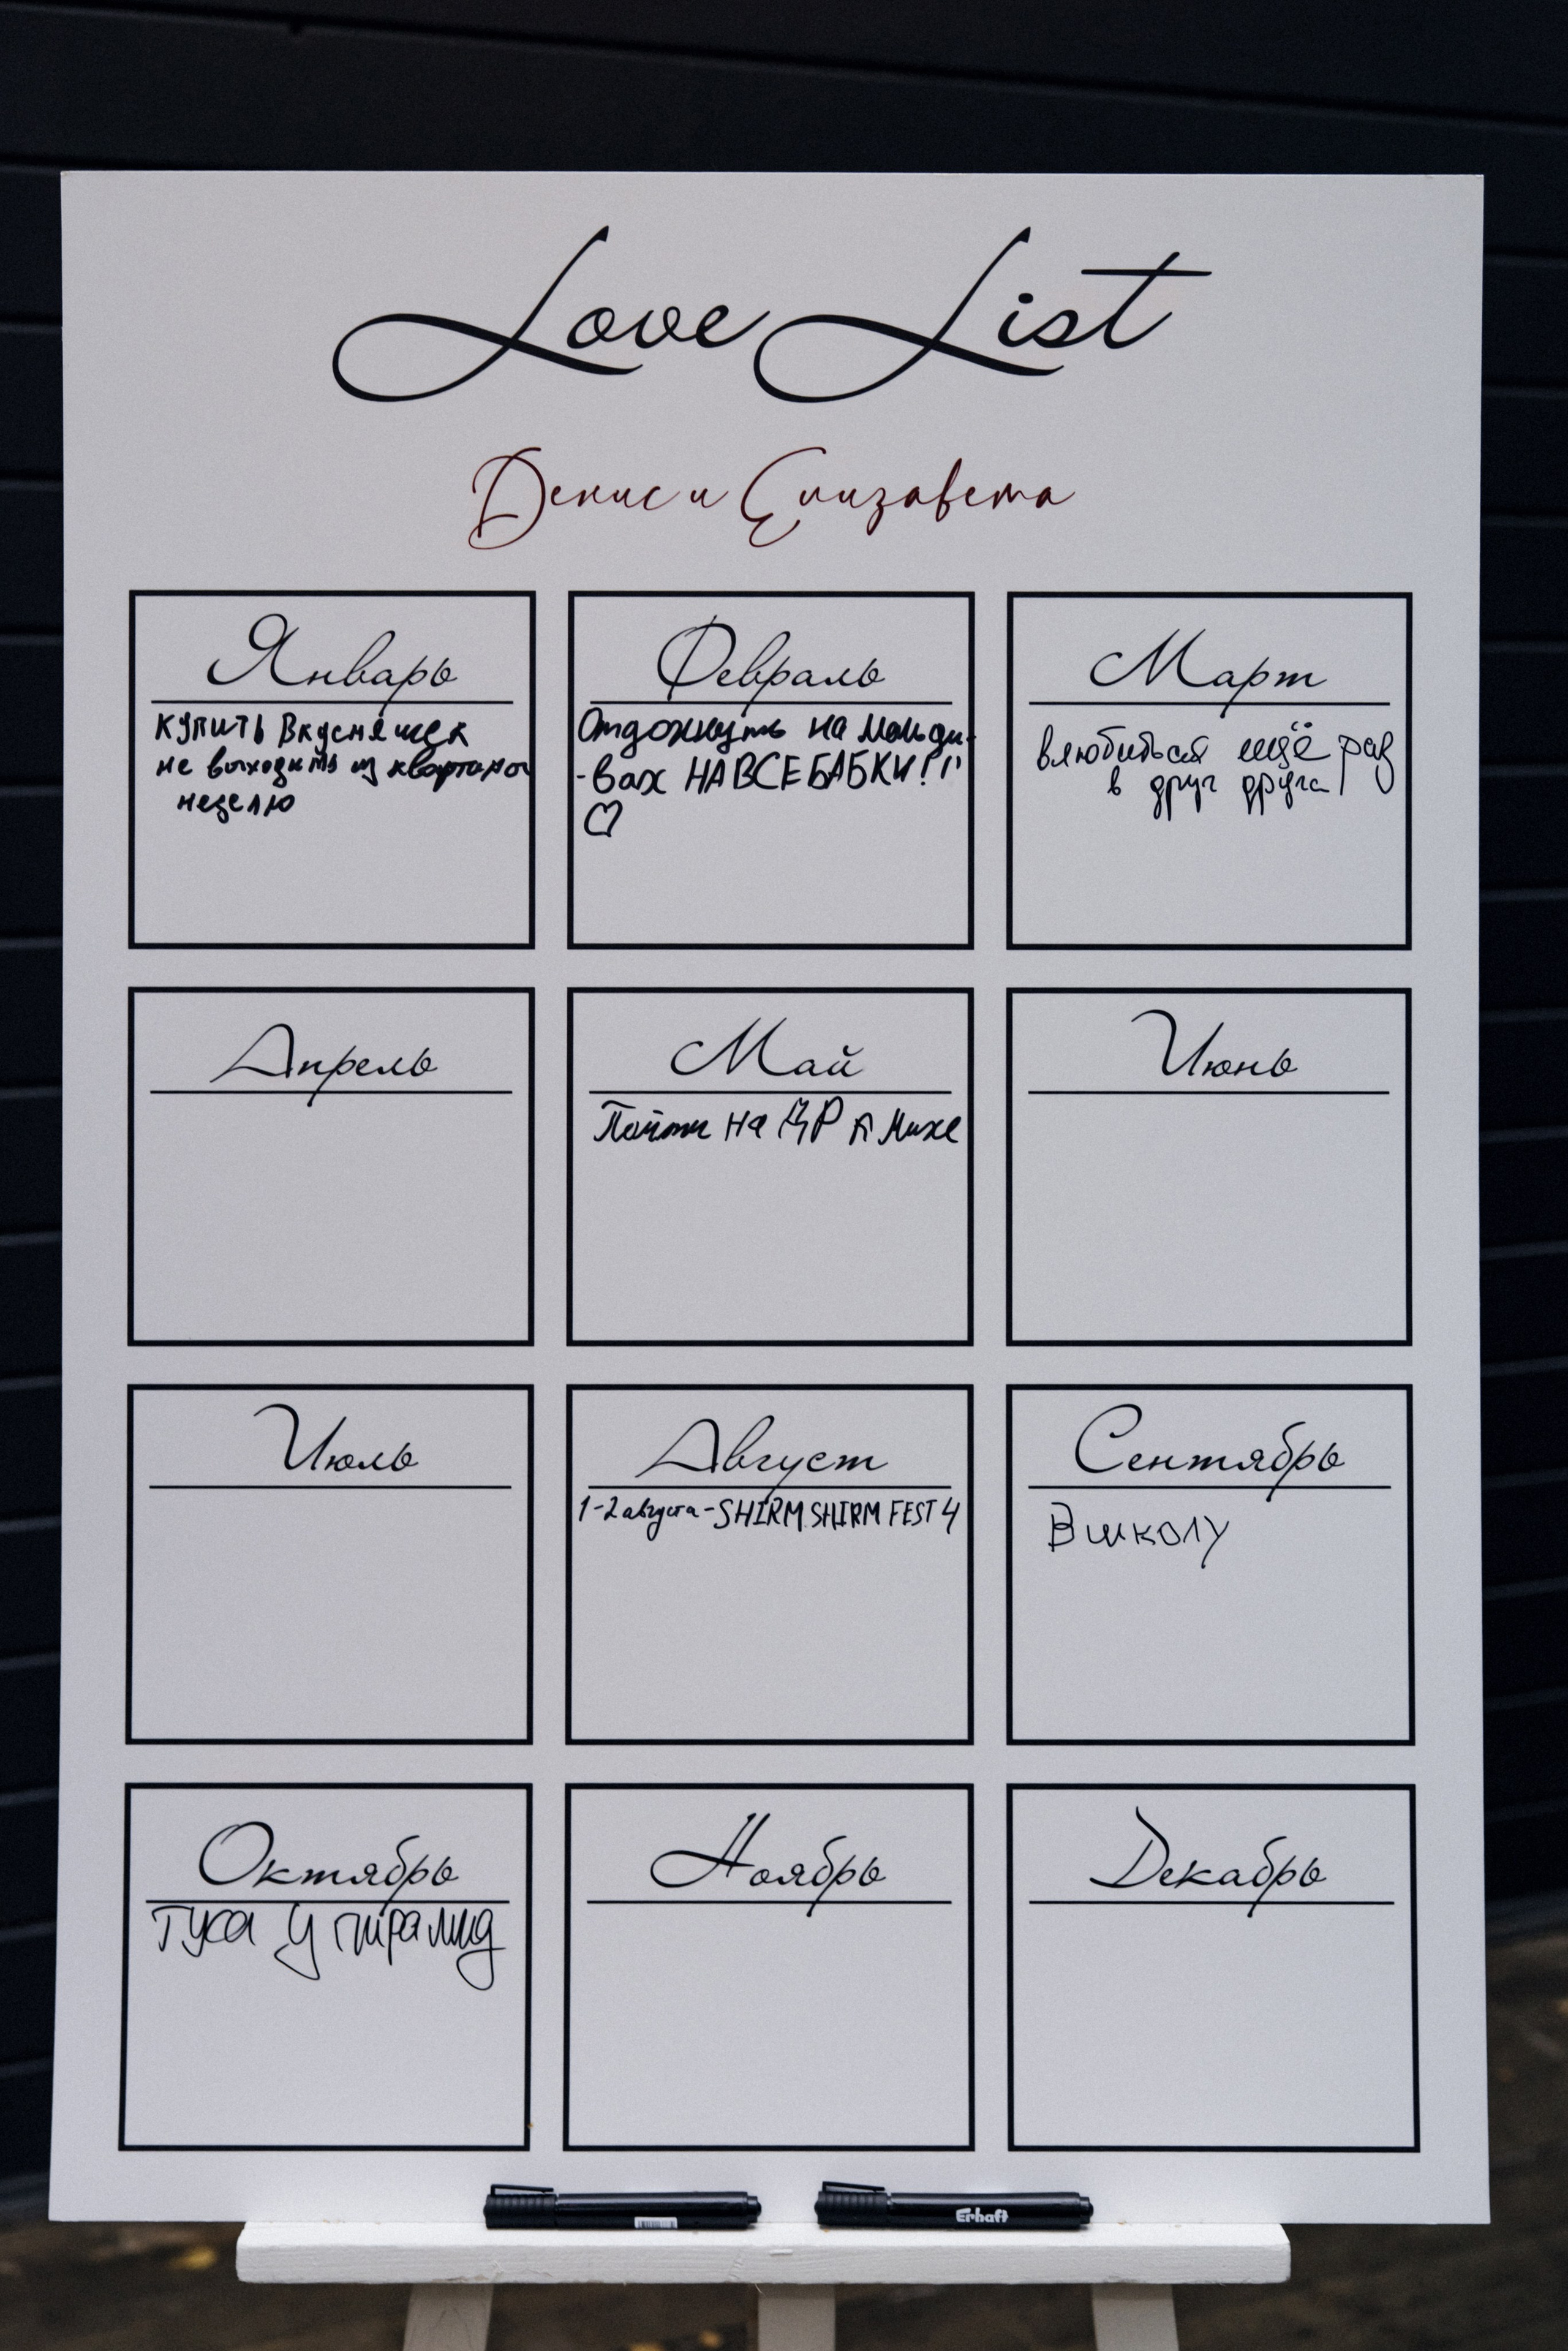 Love List
Денис и Елизавета
Январь
купить вкусняшек
не выходить из квартиры
неделю
Февраль
Отдохнуть на Мальди-
-вах НА ВСЕ БАБКИ!!!
♡
Март
влюбиться ещё раз
в друг друга
Апрель
Май
Пойти на ДР к Михе
Июнь
Июль
Август
1-2 августа - SHIRM SHIRM FEST 4
Сентябрь
В школу
Октябрь
Туса у пирамид
Ноябрь
Декабрь
Erhaft